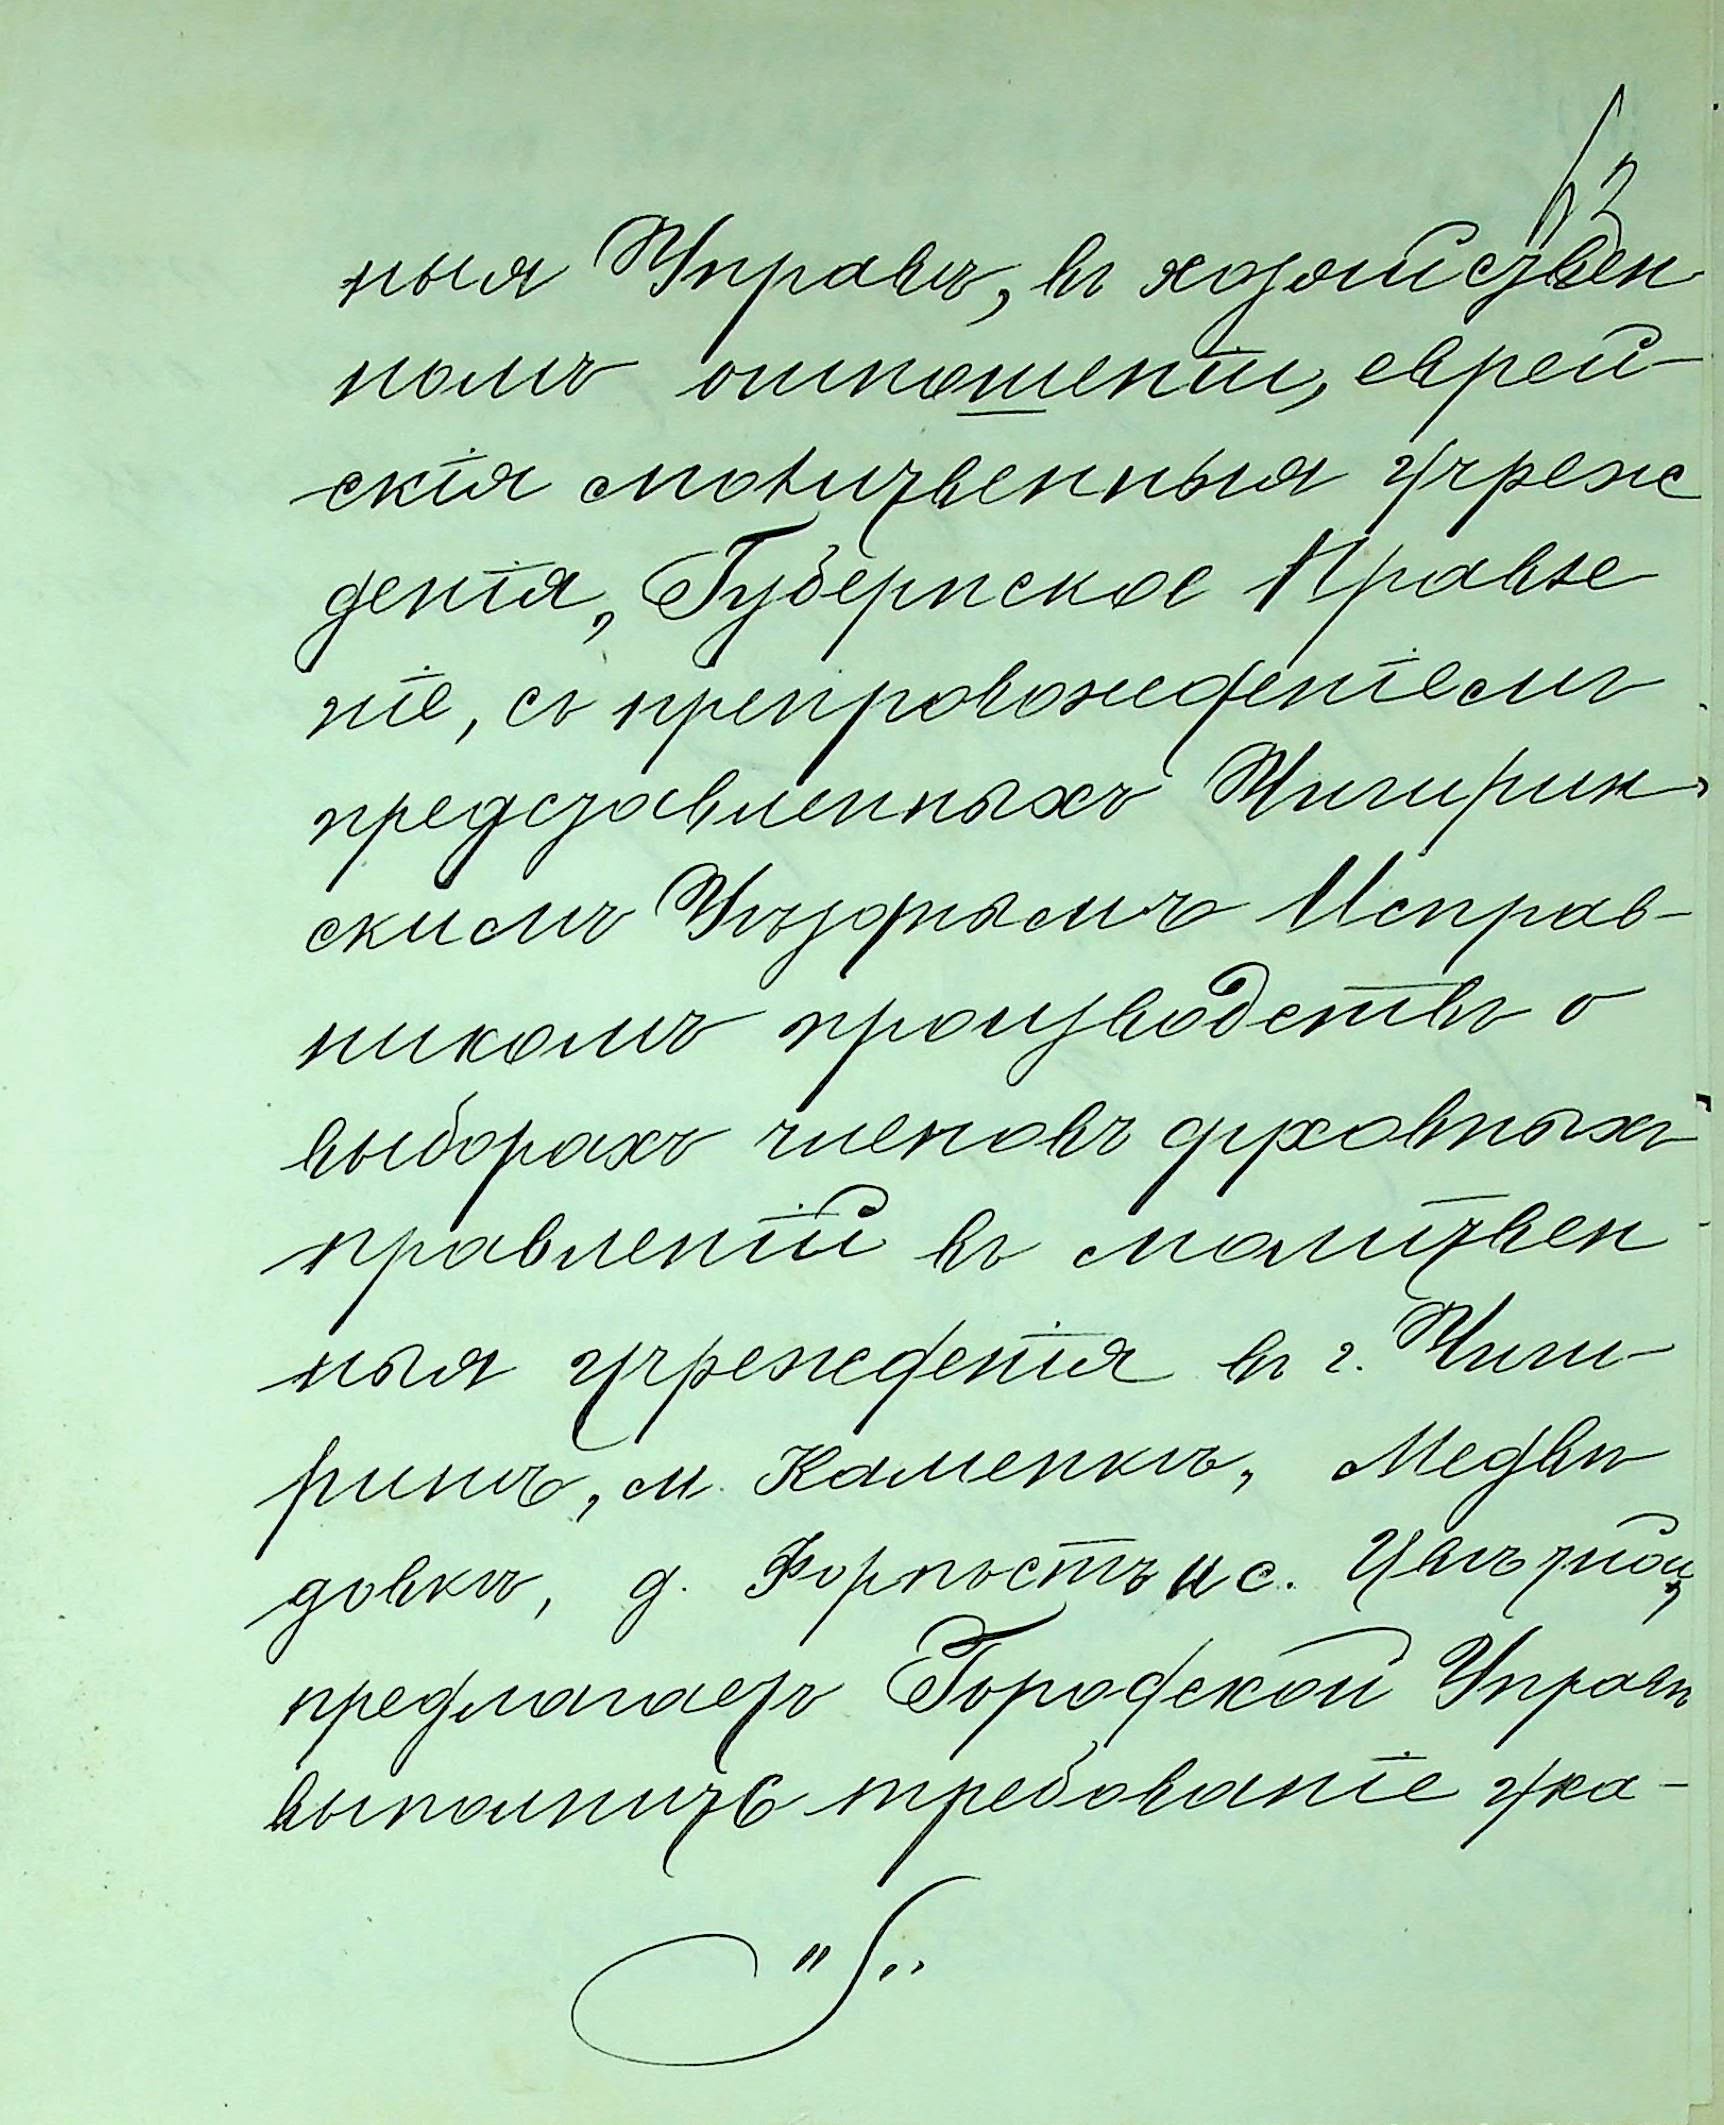 ныя Управѣ, въ хозяйствен
номъ отношеніи, еврей-
скія молитвенныя учреж
денія, Губернское Правле
ніе, съ препровожденіемъ
представленныхъ Чигирин-
скимъ Уѣзднымъ Исправ-
никомъ производствъ о
выборахъ членовъ духовныхъ
правленій въ молитвен
ныя учрежденія въ г. Чиги-
ринѣ, м. Каменкѣ, Медвѣ
довкѣ, д. Форпостѣ и с. Цвѣтной,
предлагаетъ Городской Управѣ
выполнить требованіе ука-